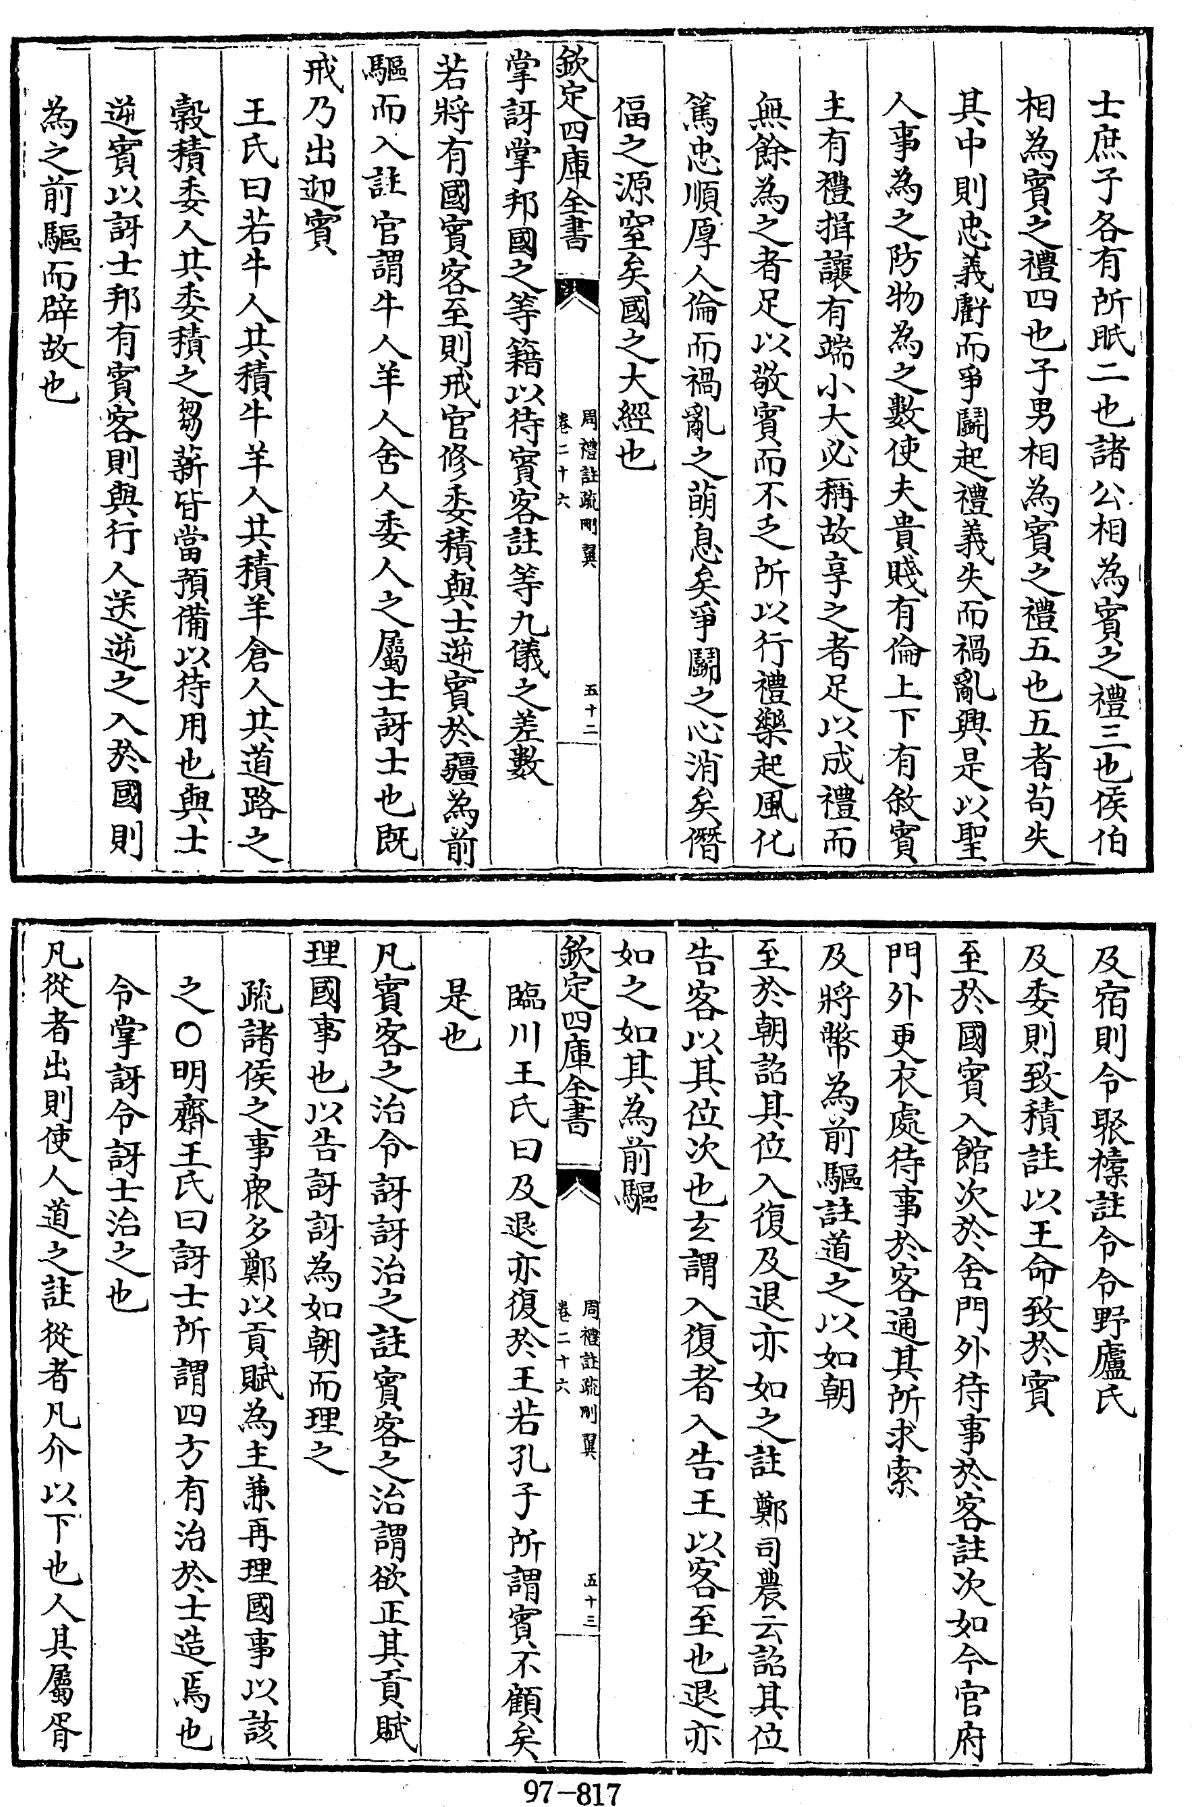 士庶子各有所眂二也諸公相為賓之禮三也侯伯
相為賓之禮四也子男相為賓之禮五也五者苟失
其中則忠義虧而爭鬬起禮義失而禍亂興是以聖
人事為之防物為之數使夫貴賤有倫上下有敘賓
主有禮揖讓有端小大必稱故享之者足以成禮而
無餘為之者足以敬賓而不乏所以行禮樂起風化
篤忠順厚人倫而禍亂之萌息矣爭鬬之心消矣僭
偪之源窒矣國之大經也
欽定四庫全書
周禮註疏刪翼
卷二十六
五十二
掌訝掌邦國之等籍以待賓客註等九儀之差數
若將有國賓客至則戒官修委積與士逆賓於疆為前
驅而入註官謂牛人羊人舍人委人之屬士訝士也既
戒乃出迎賓
王氏曰若牛人共積牛羊人共積羊倉人共道路之
穀積委人共委積之芻薪皆當預備以待用也與士
逆賓以訝士邦有賓客則與行人送逆之入於國則
為之前驅而辟故也
及宿則令聚㯓註令令野廬氏
及委則致積註以王命致於賓
至於國賓入館次於舍門外待事於客註次如今官府
門外更衣處待事於客通其所求索
及將幣為前驅註道之以如朝
至於朝詔其位入復及退亦如之註鄭司農云詔其位
告客以其位次也玄謂入復者入告王以客至也退亦
如之如其為前驅
欽定四庫全書
周禮註疏刪翼
卷二十六
五十三
臨川王氏曰及退亦復於王若孔子所謂賓不顧矣
是也
凡賓客之治令訝訝治之註賓客之治謂欲正其貢賦
理國事也以告訝訝為如朝而理之
疏諸侯之事衆多鄭以貢賦為主兼再理國事以該
之○明齋王氏曰訝士所謂四方有治於士造焉也
令掌訝令訝士治之也
凡從者出則使人道之註從者凡介以下也人其屬胥
97-817